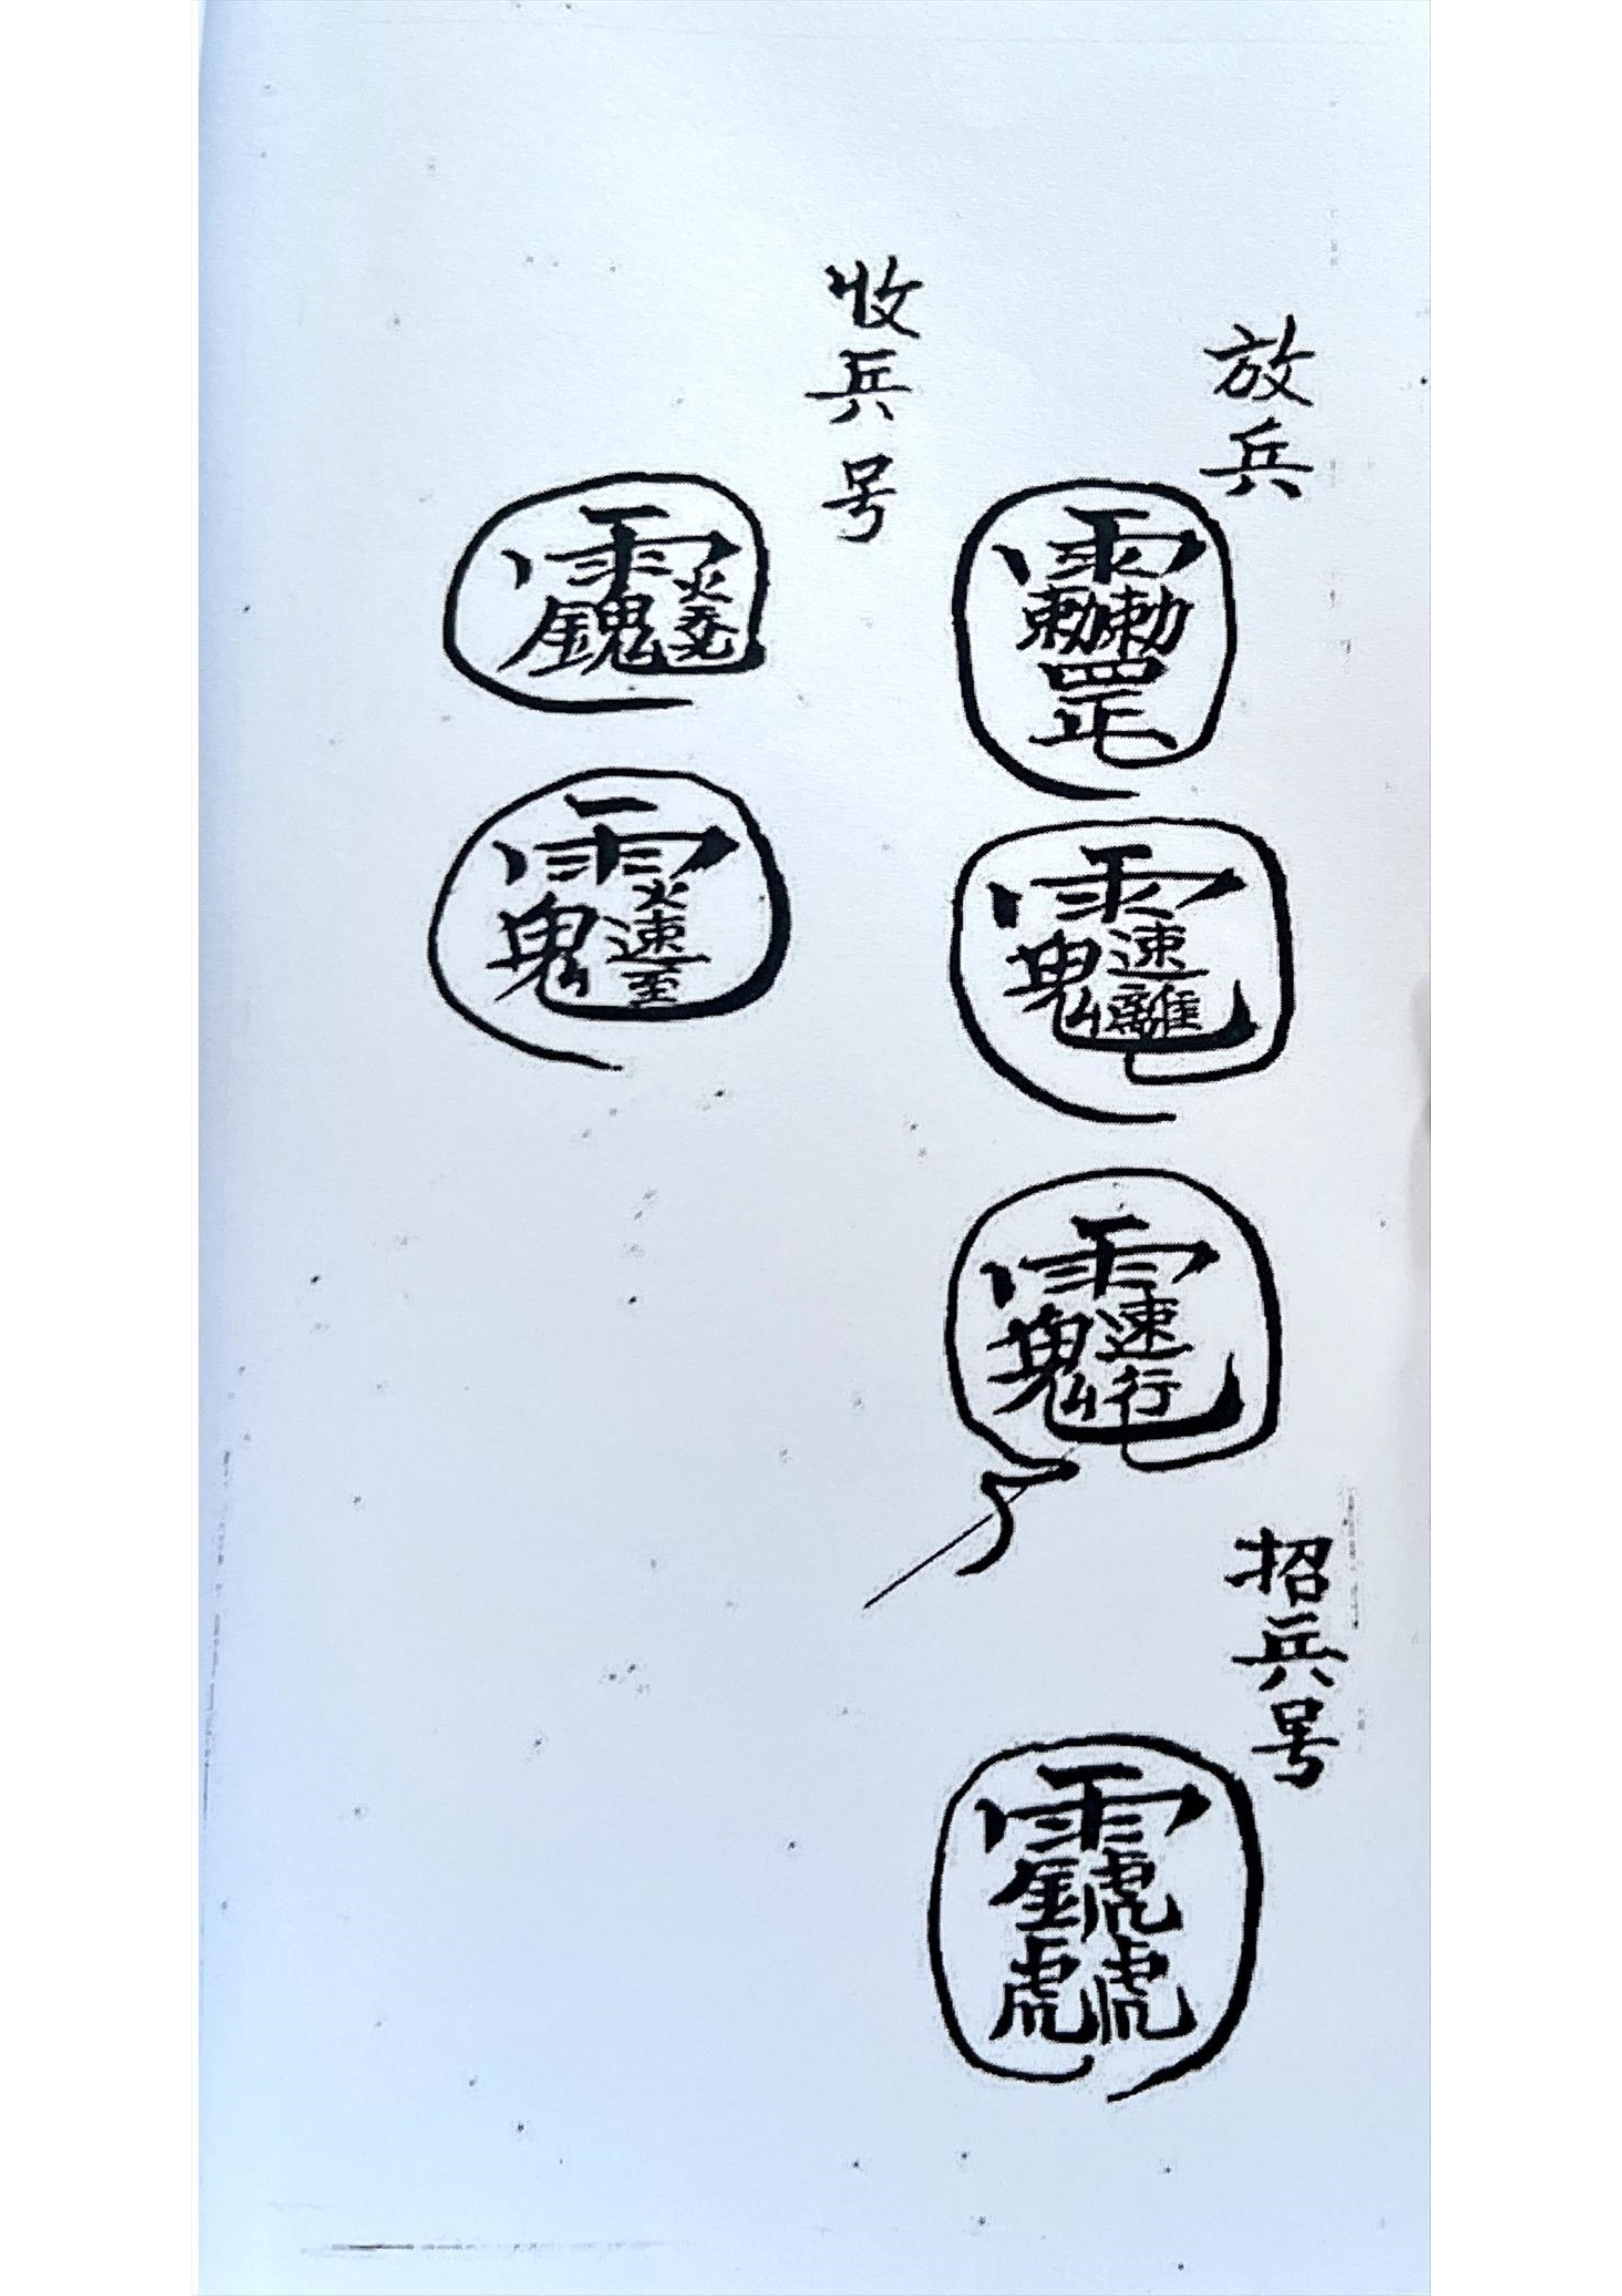 放兵
雨勅勅罡
雨鬼速離
雨鬼速行
招兵号
雨金虎虎虎
收兵号
雨金鬼火
雨鬼火速至